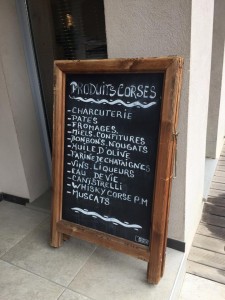 PRODUITS CORSES
- CHARCUTERIE
- PATES
- FROMAGES
- MIELS. CONFITURES
- BONBONS. NOUGATS
- HUILE D'OLIVE
- FARINE DE CHATAIGNES
- VINS. LIQUEURS
- EAU DE VIE
- CANISTRELLI
- WHISKY CORSE P.M
- MUSCATS